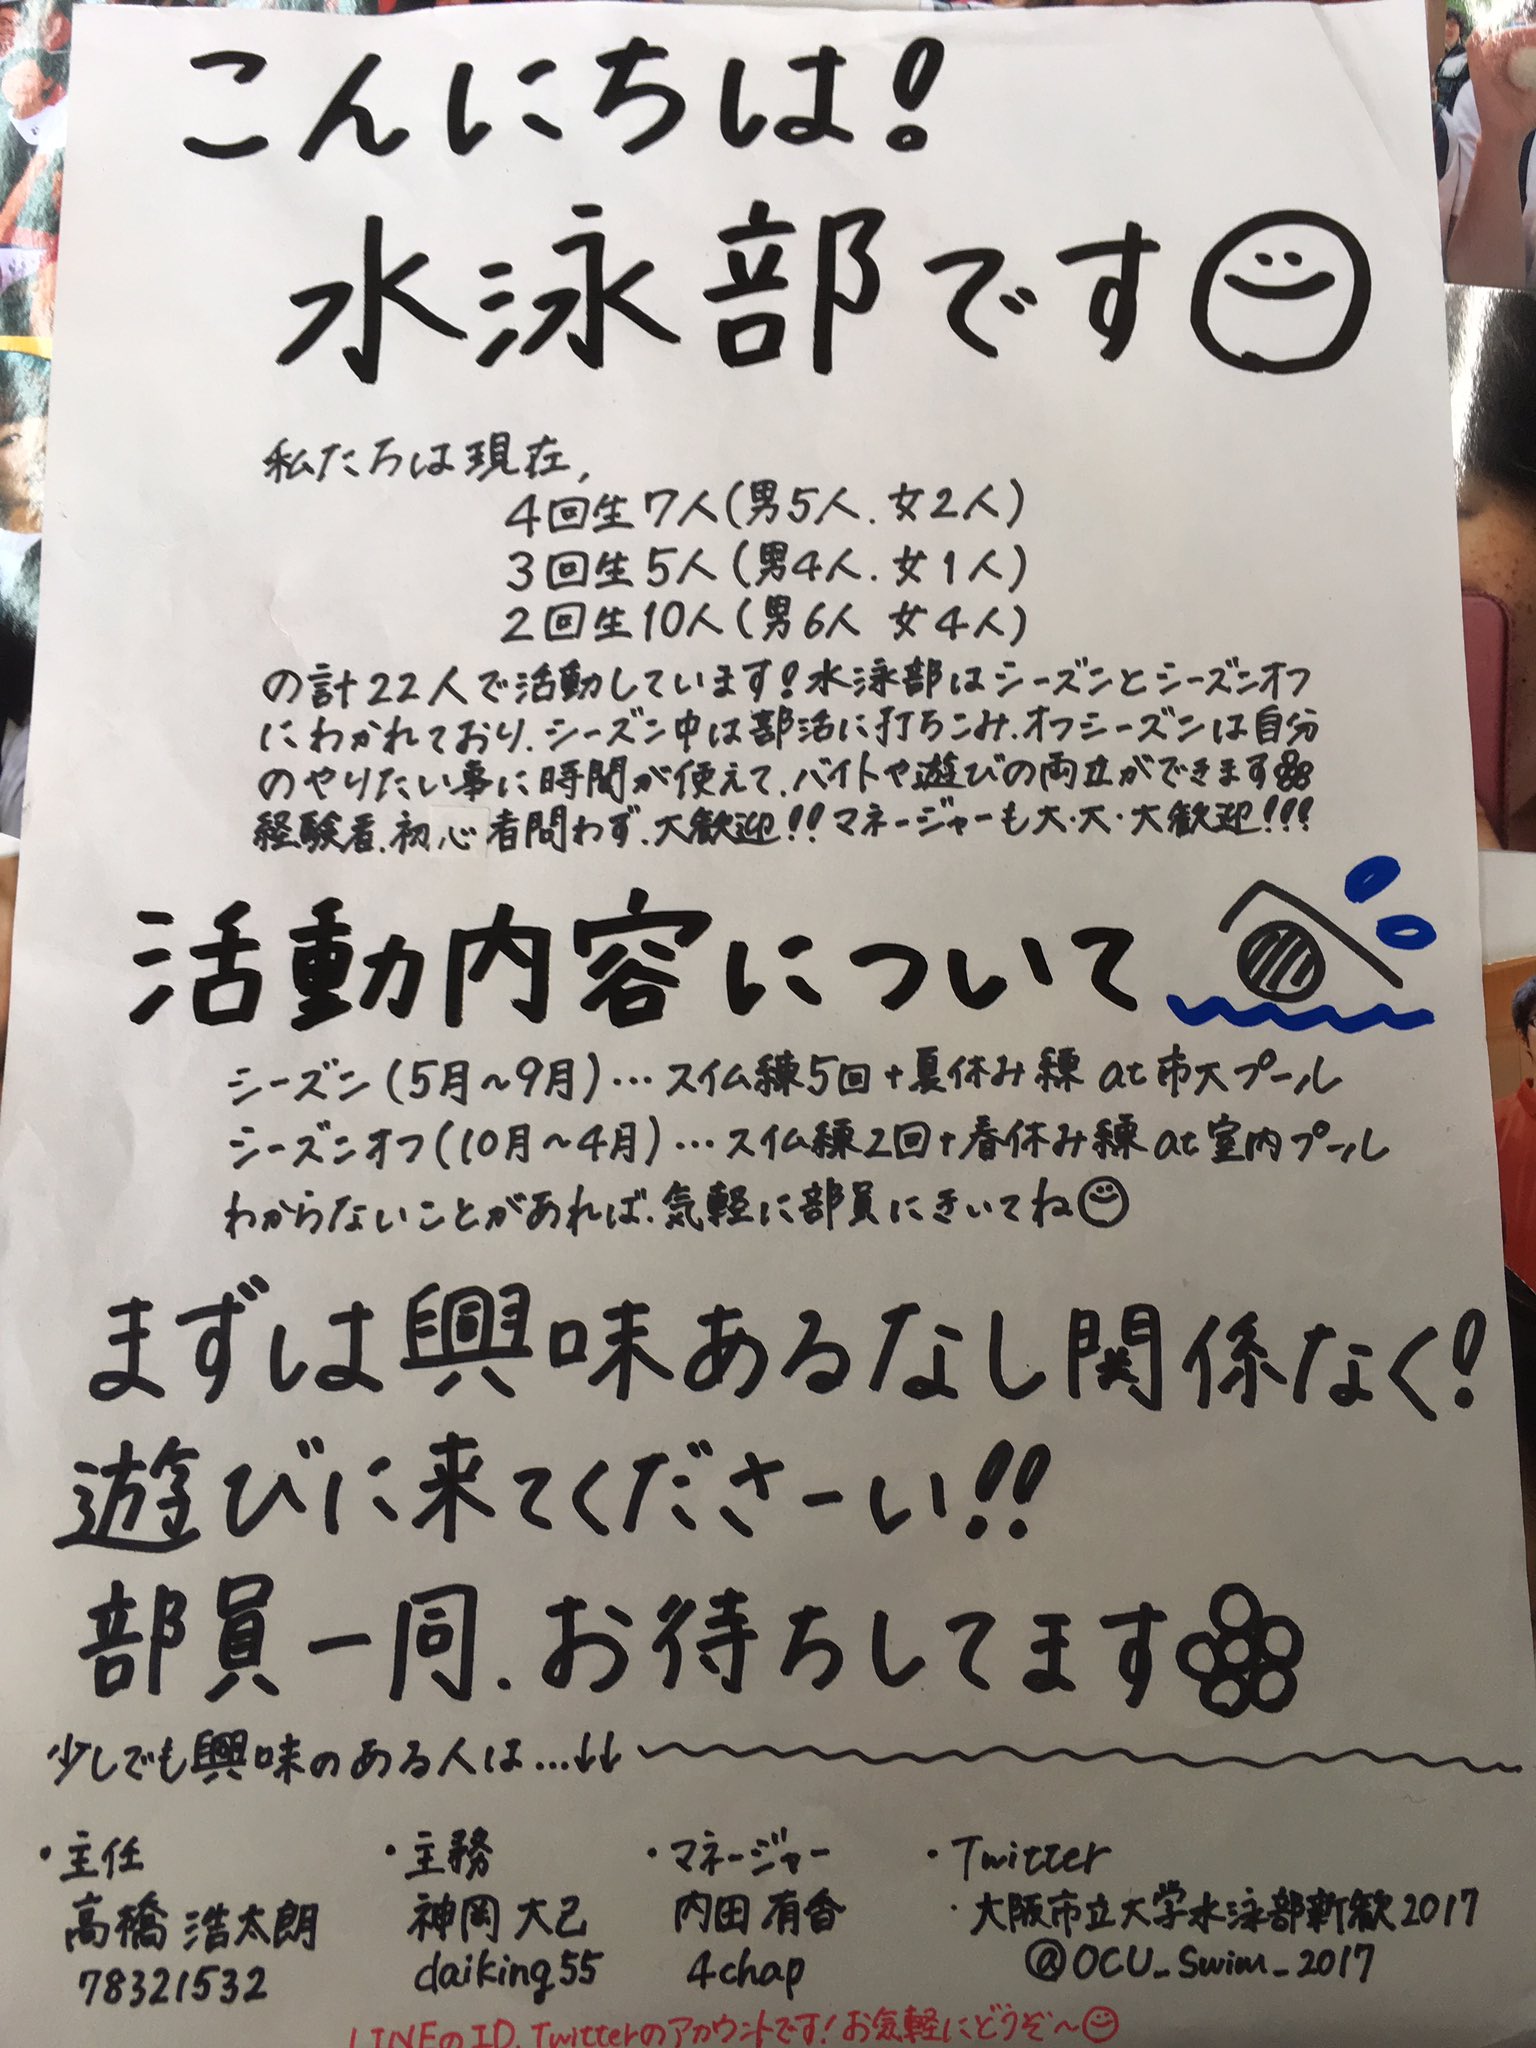 こんにちは!
水泳部です
私たちは現在,
4回生7人(男5人.女2人)
3回生5人(男4人.女1人)
2回生10人(男6人 女4人)
の計22人で活動しています!水泳部はシーズンとシーズンオフ
にわかれており.シーズン中は部活に打ちこみ.オフシーズンは自分
のやりたい事に時間が使えて.バイトや遊びの両立ができます
経験者.初心者問わず.大歓迎!!マネージャーも大・大・大歓迎!!!
活動内容について
シーズン(5月~9月)…スイム練5回+夏休み練at市大プール
シーズンオフ(10月~4月)…スイム練2回+春休み練at室内プール
わからないことがあれば.気軽に部員にきいてね
まずは興味あるなし関係なく!
遊びに来てくださーい!!
部員一同.お待ちしてます
少しでも興味のある人は…↓↓
・主任 ・主務 ・マネージャー ・Twitter
高橋 浩太朗 神岡 大己 内田 有香 ・大阪市立大学水泳部新歓2017
78321532 daiking55 4chap @OCU_Swim_2017
LINEのID.Twitterのアカウントです!お気軽にどうぞ~